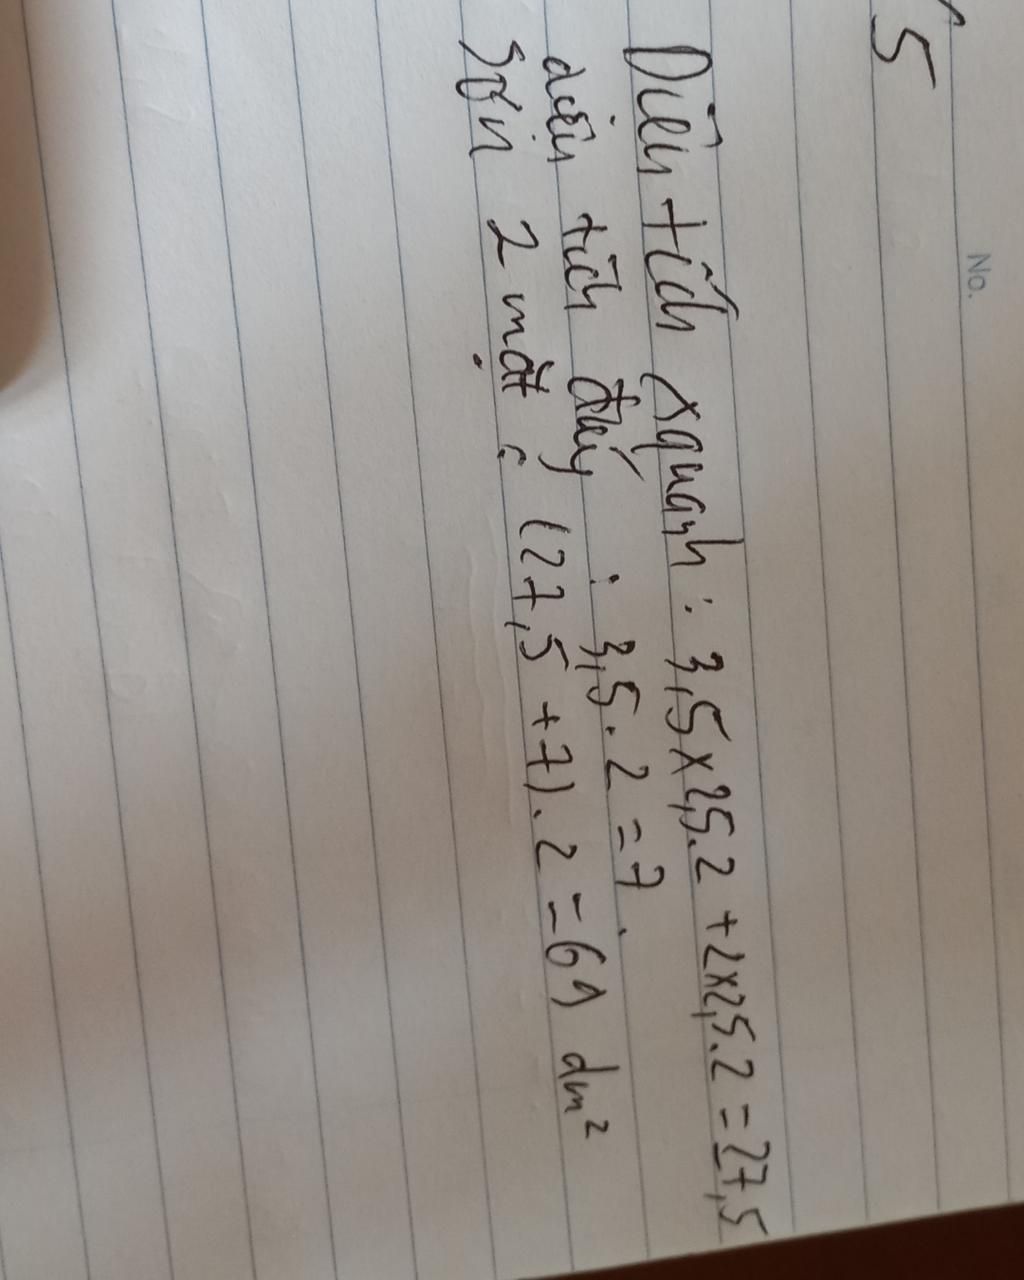 No.
5
Diện tích xquanh : 3,5x2,5.2 + 2x2,5.2 = 27,5
diện tích đáy : 3,5.2 = 7.
Sơn 2 mặt : (27,5 + 7).2 = 69 dm²